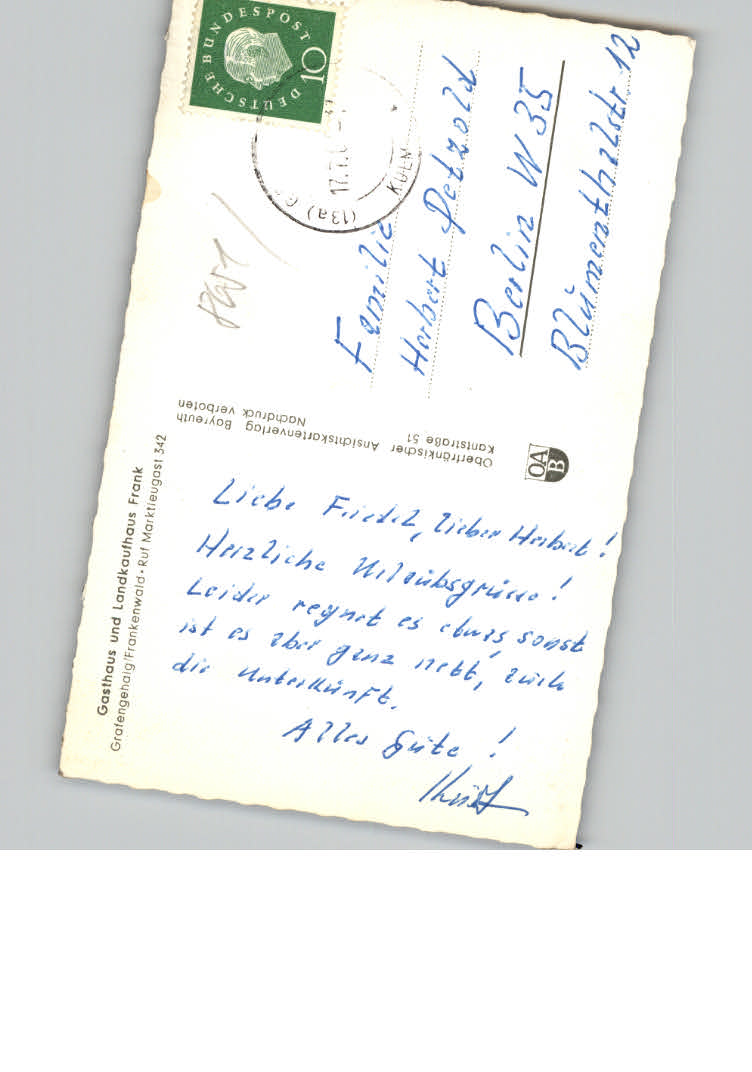 DEUTSCHE BUNDESPOST
10
(13a)
17.7.
KULM
Familie
Herbert Petzold
Berlin W 35
Blumenthalstr. 12
Oberfränkischer Ansichtskartenverlag Bayreuth
Kantstraße 51 Nachdruck verboten
OA
B
Gasthaus und Landkaufhaus Frank
Grafengehaig/Frankenwald · Ruf Marktleugast 342
Liebe Friedel, lieber Herbert!
Herzliche Urlaubsgrüsse!
Leider regnet es etwas, sonst
ist es aber ganz nett, auch
die Unterkunft.
Alles Gute!
Kurt